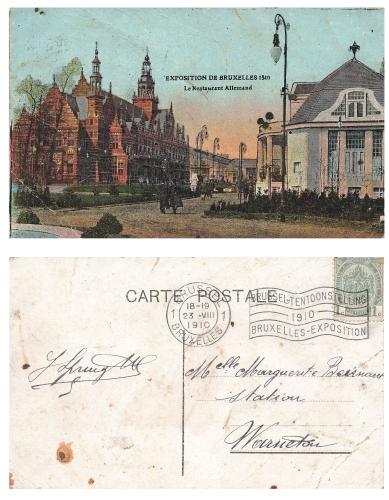 EXPOSITION DE BRUXELLES 1910
Le Restaurant Allemand
CARTE POSTALE
BRUSSEL
18-19
1 23 VIII 1
1910
BRUXELLES
BRUSSEL-TENTOONSTELLING
1910
BRUXELLES-EXPOSITION
Melle Marguerite
Station
Warneton